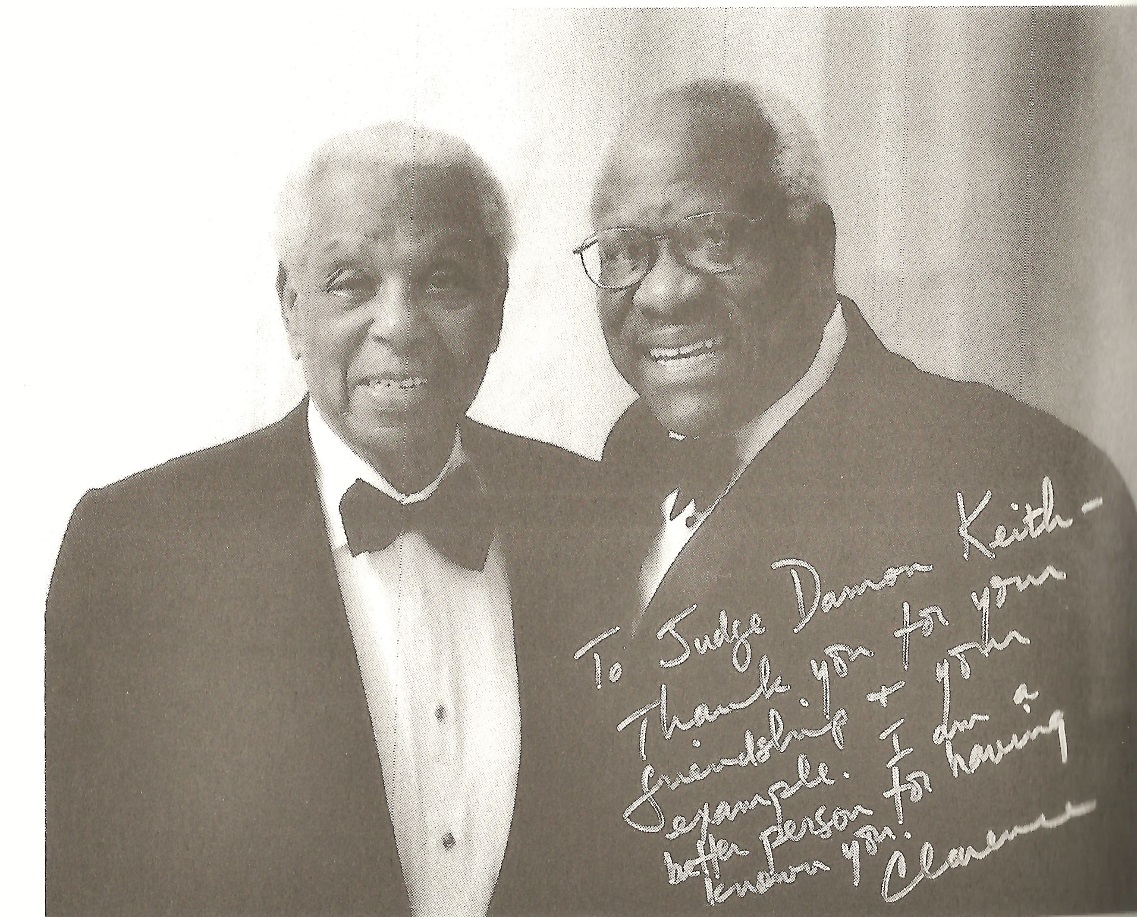 To Judge Damon Keith-
Thank you for your
friendship + your
example. I am a
better person for having
known you!
Clarence